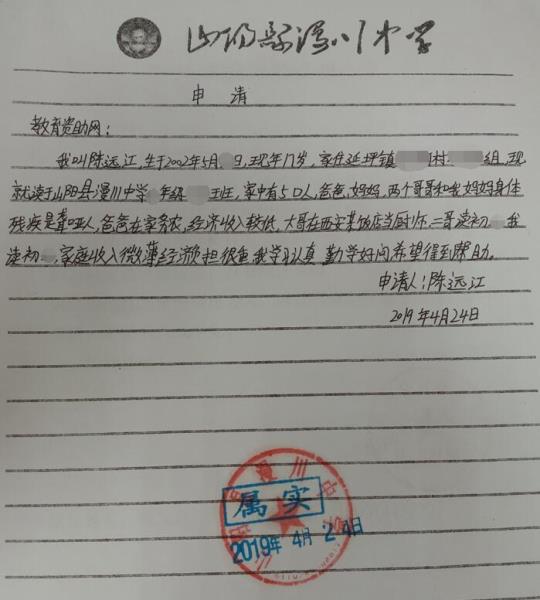 山阳县漫川中学
申 请
教育资助网：
我叫陈远江，生于2002年5月 日，现年17岁，家住延坪镇 村 组，现
就读于山阳县漫川中学 年级 班，家中有5口人，爸爸、妈妈，两个哥哥和我妈妈身体
残疾是聋哑人，爸爸在家务农，经济收入较低，大哥在西安某饭店当厨师，二哥读初 我
读初 ，家庭收入微薄经济负担很重我学习认真 勤学好问希望得到帮助。
申请人：陈远江
2019年4月24日
漫川中学
属实
2019年4月24日